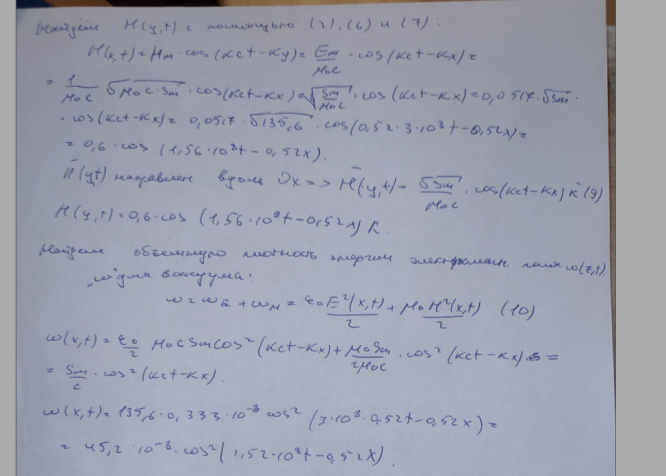 Найдём H(y,t) с помощью (2),(6) и (7).
H(x,t) = Hm · cos(kct-ky) = Em/μ₀c · cos(kct-kx) =
= 1/μ₀c √μ₀c·Sm · cos(kct-kx) = √Sm/μ₀c · cos(kct-kx) = 0,0517 · √Sm ·
· cos(kct-kx) = 0,0517 · √135,6 · cos(0,52 · 3·10⁸t - 0,52x) =
= 0,6 · cos (1,56·10⁸t - 0,52x).
H(y,t) направлен вдоль Ox => H(y,t) = √Sm/μ₀c · cos(kct-kx) k (9)
H(y,t) = 0,6 · cos (1,56·10⁸t - 0,52x) k.
Найдем объемную плотность энергии электромагн. поля w(z,t).
"w" для вакуума:
w = wE + wM = ε₀E²(x,t)/2 + μ₀H²(x,t)/2 (10)
w(x,t) = ε₀/2 μ₀cSm cos²(kct-kx) + μ₀Sm/2μ₀c · cos²(kct-kx) =
= Sm/c · cos²(kct-kx).
w(x,t) = 135,6 · 0,333 · 10⁻⁸ cos² (3·10⁸ · 0,52t - 0,52x) =
= 45,2 · 10⁻⁸ · cos² (1,52·10⁸t - 0,52x).